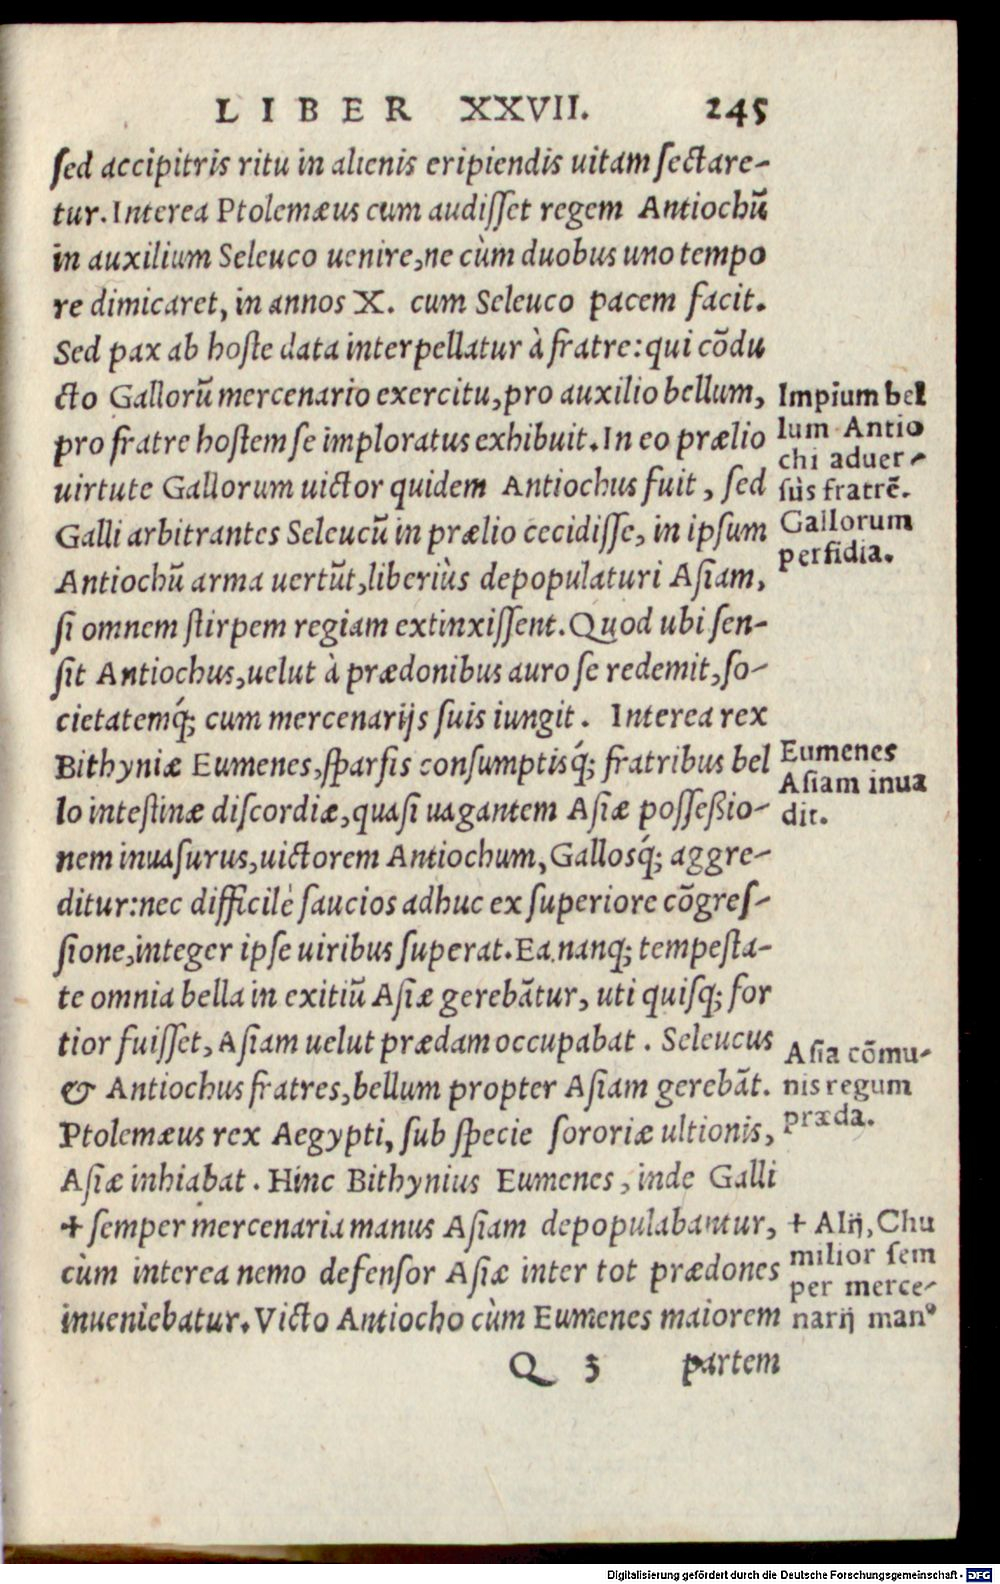 LIBER XXVII. 245
sed accipitris ritu in alienis eripiendis uitam sectare-
tur. Interea Ptolemæus cum audisset regem Antiochū
in auxilium Seleuco uenire, ne cùm duobus uno tempo
re dimicaret, in annos X. cum Seleuco pacem facit.
Sed pax ab hoste data interpellatur à fratre: qui cōdu
cto Gallorū mercenario exercitu, pro auxilio bellum,
pro fratre hostem se imploratus exhibuit. In eo prælio
uirtute Gallorum uictor quidem Antiochus fuit, sed
Galli arbitrantes Seleucū in prælio cecidisse, in ipsum
Antiochū arma uertūt, liberiùs depopulaturi Asiam,
si omnem stirpem regiam extinxissent. Quod ubi sen-
sit Antiochus, uelut à prædonibus auro se redemit, so-
cietatemq́; cum mercenarijs suis iungit. Interea rex
Bithyniæ Eumenes, sparsis consumptisq́; fratribus bel
lo intestinæ discordiæ, quasi uagantem Asiæ possessio-
nem inuasurus, uictorem Antiochum, Gallosq́; aggre-
ditur: nec difficilè saucios adhuc ex superiore cōgres-
sione, integer ipse uiribus superat. Ea nanq; tempesta-
te omnia bella in exitiū Asiæ gerebātur, uti quisq; for
tior fuisset, Asiam uelut prædam occupabat. Seleucus
& Antiochus fratres, bellum propter Asiam gerebāt.
Ptolemæus rex Aegypti, sub specie sororiæ ultionis,
Asiæ inhiabat. Hinc Bithynius Eumenes, inde Galli
+ semper mercenaria manus Asiam depopulabantur,
cùm interea nemo defensor Asiæ inter tot prædones
inueniebatur. Victo Antiocho cùm Eumenes maiorem
Q 3 partem
Impium bel
lum Antio
chi aduer-
sùs fratrē.
Gallorum
perfidia.
Eumenes
Asiam inua
dit.
Asia cōmu-
nis regum
præda.
+ Alij, Chu
milior sem
per merce-
narij manꝰ
Digitalisierung gefördert durch die Deutsche Forschungsgemeinschaft - DFG